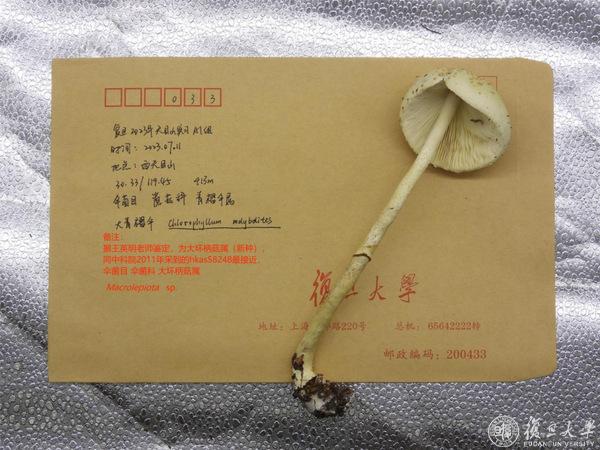 033
复旦2023年天目山实习 A1组
时间：2023.07.11
地点：西天目山
30.33/119.45 913m
伞菌目 蘑菇科 青褶伞属
大青褶伞 Chlorophyllum molybdites
备注：
据王英明老师鉴定，为大环柄菇属（新种），
同中科院2011年采到的hkas58248最接近。
伞菌目 伞菌科 大环柄菇属
Macrolepiota sp.
復旦大學
地址：上海 路220号 总机：65642222转
邮政编码：200433
復旦大學
FUDAN UNIVERSITY